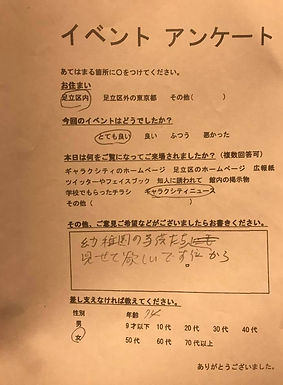 イベント アンケート
あてはまる箇所に○をつけてください。
お住まい
足立区内 足立区外の東京都 その他( )
今回のイベントはどうでしたか?
とても良い 良い ふつう 悪かった
本日は何をご覧になってご来場されましたか?(複数回答可)
ギャラクシティのホームページ 足立区のホームページ 広報紙
ツイッターやフェイスブック 知人に誘われて 館内の掲示物
学校でもらったチラシ ギャラクシティニュース
その他( )
その他、ご意見ご希望などがございましたらお書きください。
幼稚園の子供たち
見せて欲しいです
から
差し支えなければ教えてください。
性別 年齢
男 9才以下 10代 20代 30代 40代
女 50代 60代 70代以上
ありがとうございました。